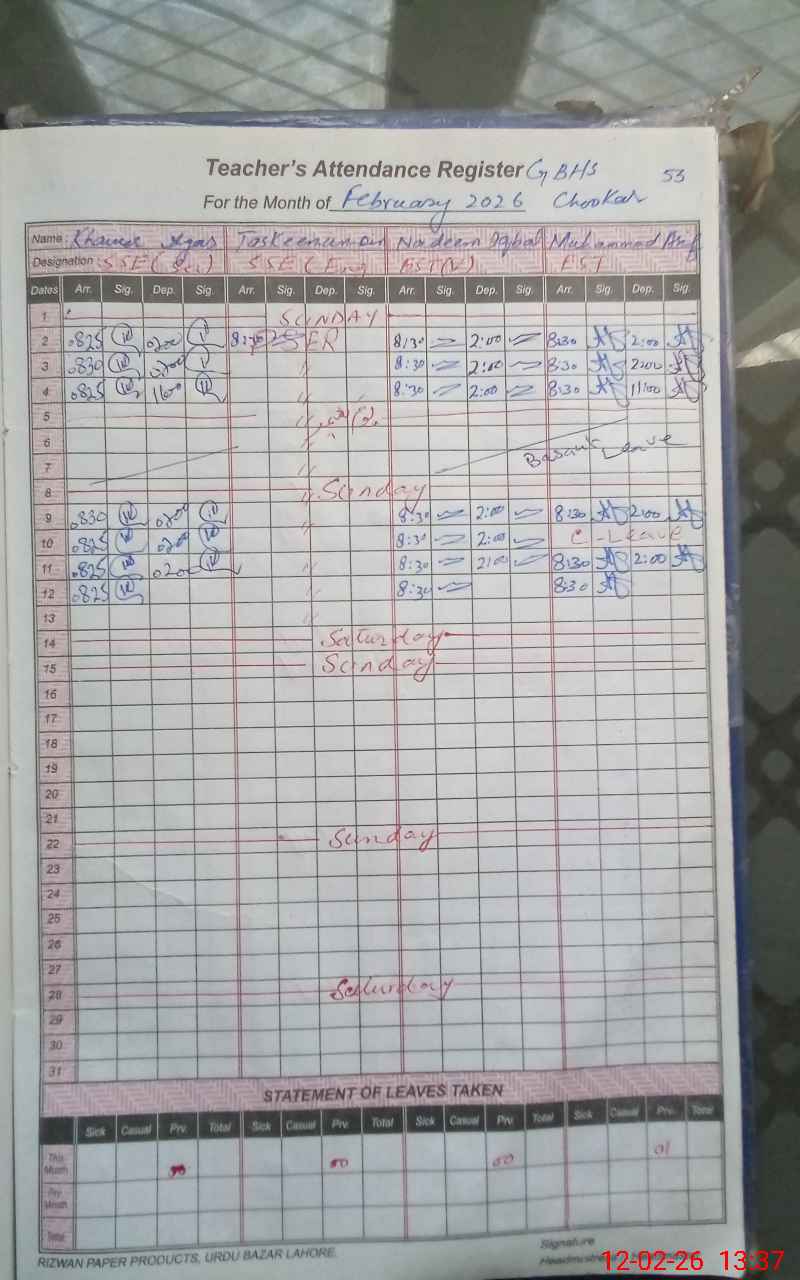 Teacher's Attendance Register GBHS 53
For the Month of February 2026 Chookar
Name: Nadeem Iqbal Muhammad Arif
Designation: SSE (Sci) SSE (Eng EST
Dates Arr. Sig. Dep. Sig. Arr. Sig. Dep. Sig. Arr. Sig. Dep. Sig. Arr. Sig. Dep. Sig.
1 SUNDAY
2 0825 0200 8:30 2:00 8:30 2:00
3 0830 0200 " 8:30 2:00 8:30 2:00
4 0825 1600 " 8:30 2:00 8:30 11:00
5 "
6
7 " Leave
8 " Sunday
9 0830 0200 " 8:30 2:00 8:30 2:00
10 0825 0200 8:30 2:00 C-Leave
11 0825 0200 " 8:30 2:00 8:30 2:00
12 0825 8:30 8:30
13 "
14 Saturday
15 Sunday
16
17
18
19
20
21
22 Sunday
23
24
25
26
27
28 Saturday
29
30
31
STATEMENT OF LEAVES TAKEN
Sick Casual Prv. Total Sick Casual Prv. Total Sick Casual Prv. Total Sick Casual Prv. Total
This Month 00 00 01
Prv. Month
Total
RIZWAN PAPER PRODUCTS, URDU BAZAR LAHORE.
Signature
12-02-26 13:37